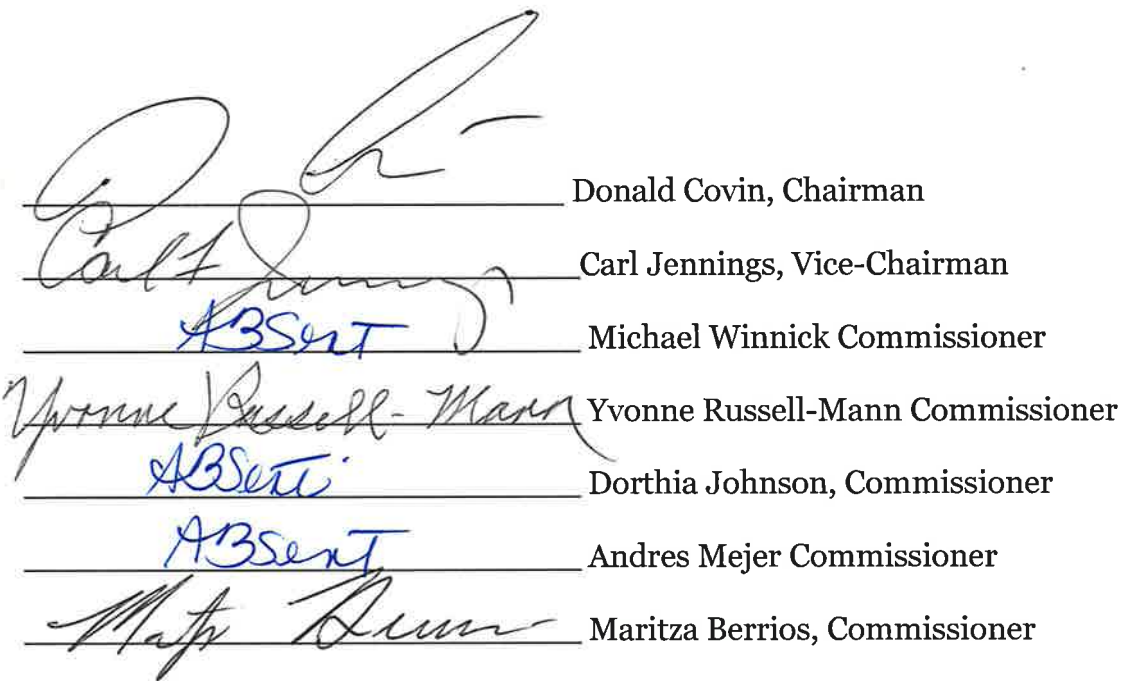 Donald Covin, Chairman
Carl F Jennings Carl Jennings, Vice-Chairman
ABSent Michael Winnick Commissioner
Yvonne Russell-Mann Yvonne Russell-Mann Commissioner
ABSent Dorthia Johnson, Commissioner
ABSent Andres Mejer Commissioner
Maritza Berrios, Commissioner